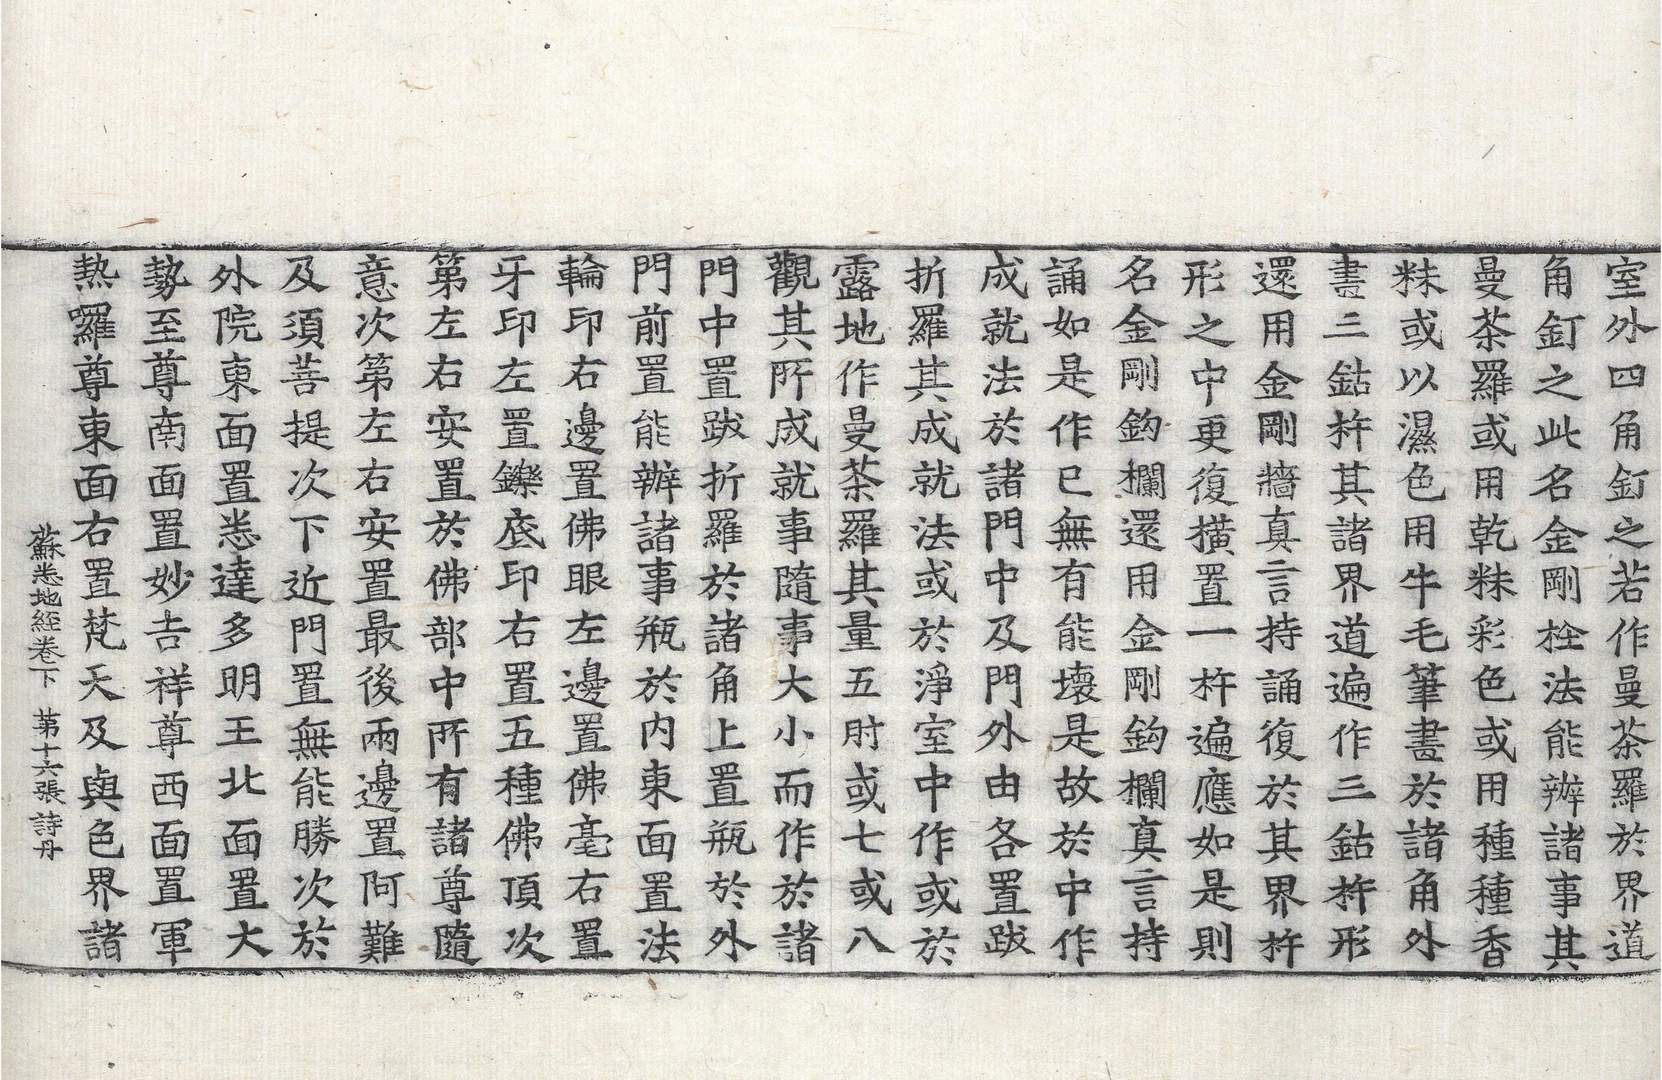 室外四角釘之若作曼荼羅於界道
角釘之此名金剛栓法能辦諸事其
曼荼羅或用乾粖彩色或用種種香
粖或以濕色用牛毛筆畫於諸角外
畫三鈷杵其諸界道遍作三鈷杵形
還用金剛牆真言持誦復於其界杵
形之中更復橫置一杵遍應如是則
名金剛鈎欄還用金剛鈎欄真言持
誦如是作已無有能壞是故於中作
成就法於諸門中及門外由各置跋
折羅其成就法或於淨室中作或於
露地作曼荼羅其量五肘或七或八
觀其所成就事隨事大小而作於諸
門中置跋折羅於諸角上置瓶於外
門前置能辦諸事瓶於内東面置法
輪印右邊置佛眼左邊置佛毫右置
牙印左置鑠底印右置五種佛頂次
第左右安置於佛部中所有諸尊隨
意次第左右安置最後兩邊置阿難
及須菩提次下近門置無能勝次於
外院東面置悉達多明王北面置大
勢至尊南面置妙吉祥尊西面置軍
𤍠羅尊東面右置梵天及與色界諸
蘇悉地經卷下 第十六張 詩丹